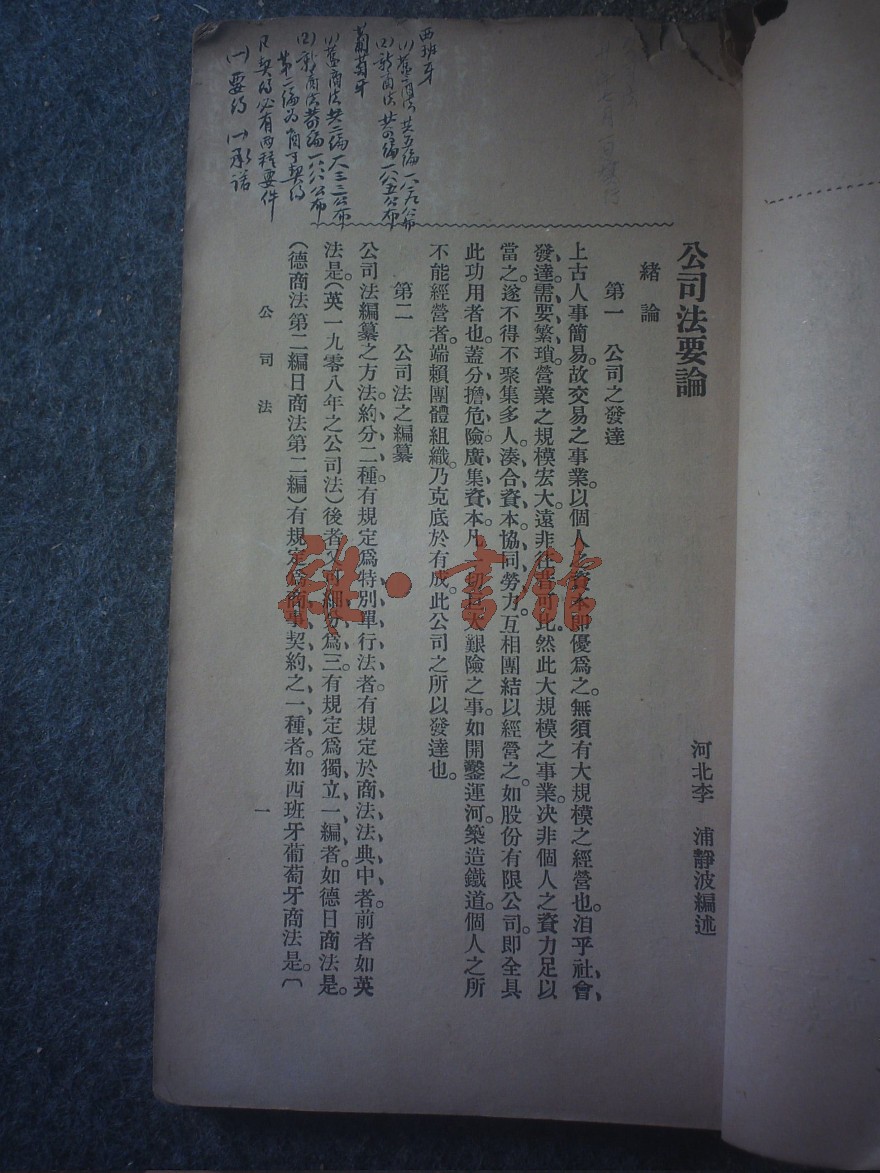 公司法要論
河北李 浦靜波編述
緒論
第一 公司之發達
上古人事簡易。故交易之事業。以個人之資本即優爲之。無須有大規模之經營也。洎乎社會、
發達。需要繁瑣。營業之規模宏大。遠非往昔可比。然此大規模之事業。决非個人之資力足以
當之。遂不得不聚集多人。湊合資本。協同勞力。互相團結以經營之。如股份有限公司。即全具
此功用者也。蓋分擔危險。廣集資本。凡一切巨大艱險之事。如開鑿運河。築造鐵道。個人之所
不能經營者。端賴團體組織。乃克底於有成。此公司之所以發達也。
第二 公司法之編纂
公司法編纂之方法。約分二種。有規定爲特別單行法者。有規定於商法法典中者。前者如英
法是。(英一九零八年之公司法)後者又可細分爲三。有規定爲獨立一編者。如德日商法是。
(德商法第二編日商法第二編)有規定爲商事契約之一種者。如西班牙葡萄牙商法是。(
公司法
一
西班牙
(1)舊商法 共五編 一八二九公布
(2)新商法 共四編 一八八五公布
葡萄牙
(1)舊商法共二編 一八三三公布
(2)新商法 四編 一八八八公布
第二編爲商事契約
凡契約必有兩種要件
(一)要約 (一)承諾
雜·書館